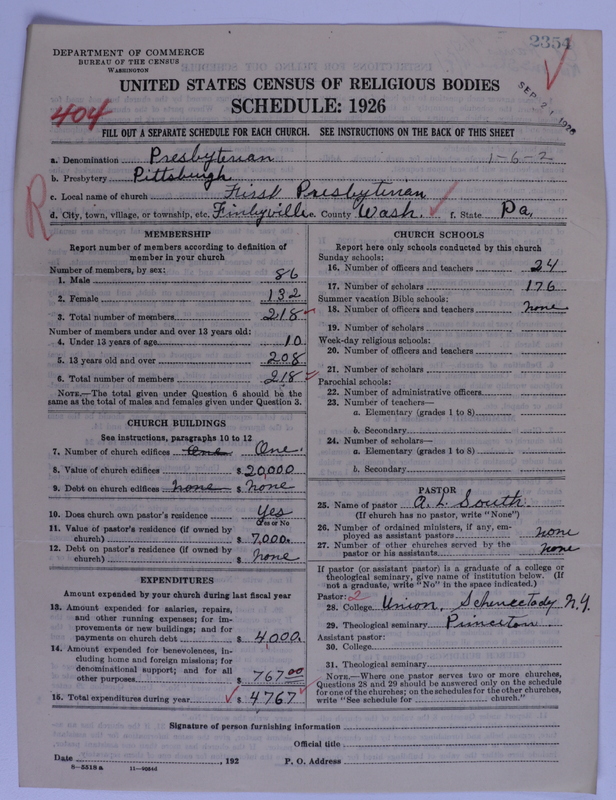 2354
DEPARTMENT OF COMMERCE
BUREAU OF THE CENSUS
WASHINGTON
UNITED STATES CENSUS OF RELIGIOUS BODIES
SCHEDULE: 1926
SEP 21 1926
404
FILL OUT A SEPARATE SCHEDULE FOR EACH CHURCH. SEE INSTRUCTIONS ON THE BACK OF THIS SHEET
a. Denomination Presbyterian 1-6-2
b. Presbytery Pittsburgh
c. Local name of church First Presbyterian
R
d. City, town, village, or township, etc. Finleyville e. County Wash. f. State Pa.
MEMBERSHIP
Report number of members according to definition of
member in your church
Number of members, by sex:
1. Male 86
2. Female 132
3. Total number of members 218
Number of members under and over 13 years old:
4. Under 13 years of age 10
5. 13 years old and over 208
6. Total number of members 218
NOTE.—The total given under Question 6 should be the
same as the total of males and females given under Question 3.
CHURCH BUILDINGS
See instructions, paragraphs 10 to 12
7. Number of church edifices One One.
8. Value of church edifices $ 20,000
9. Debt on church edifices none $ none
10. Does church own pastor's residence Yes
Yes or No
11. Value of pastor's residence (if owned by
church) $ 7,000.
12. Debt on pastor's residence (if owned by
church) $ none
EXPENDITURES
Amount expended by your church during last fiscal year
13. Amount expended for salaries, repairs,
and other running expenses; for im-
provements or new buildings; and for
payments on church debt $ 4,000.
14. Amount expended for benevolences, in-
cluding home and foreign missions; for
denominational support; and for all
other purposes $ 767 00
15. Total expenditures during year $ 4767
CHURCH SCHOOLS
Report here only schools conducted by this church
Sunday schools:
16. Number of officers and teachers 24
17. Number of scholars 176
Summer vacation Bible schools:
18. Number of officers and teachers none
19. Number of scholars
Week-day religious schools:
20. Number of officers and teachers
21. Number of scholars
Parochial schools:
22. Number of administrative officers
23. Number of teachers—
a. Elementary (grades 1 to 8)
b. Secondary
24. Number of scholars—
a. Elementary (grades 1 to 8)
b. Secondary
PASTOR
25. Name of pastor A. L. South.
(If church has no pastor, write "None")
26. Number of ordained ministers, if any, em-
ployed as assistant pastors none
27. Number of other churches served by the
pastor or his assistants none
If pastor (or assistant pastor) is a graduate of a college or
theological seminary, give name of institution below. (If
not a graduate, write "No" in the space indicated.)
Pastor: 2
28. College Union, Schenectady N.Y.
29. Theological seminary Princeton
Assistant pastor:
30. College
31. Theological seminary
NOTE.—Where one pastor serves two or more churches,
Questions 28 and 29 should be answered only on the schedule
for one of the churches; on the schedules for the other churches,
write "See schedule for church."
Signature of person furnishing information
Official title
Date , 192 P. O. Address
8—5518 a 11—9084d